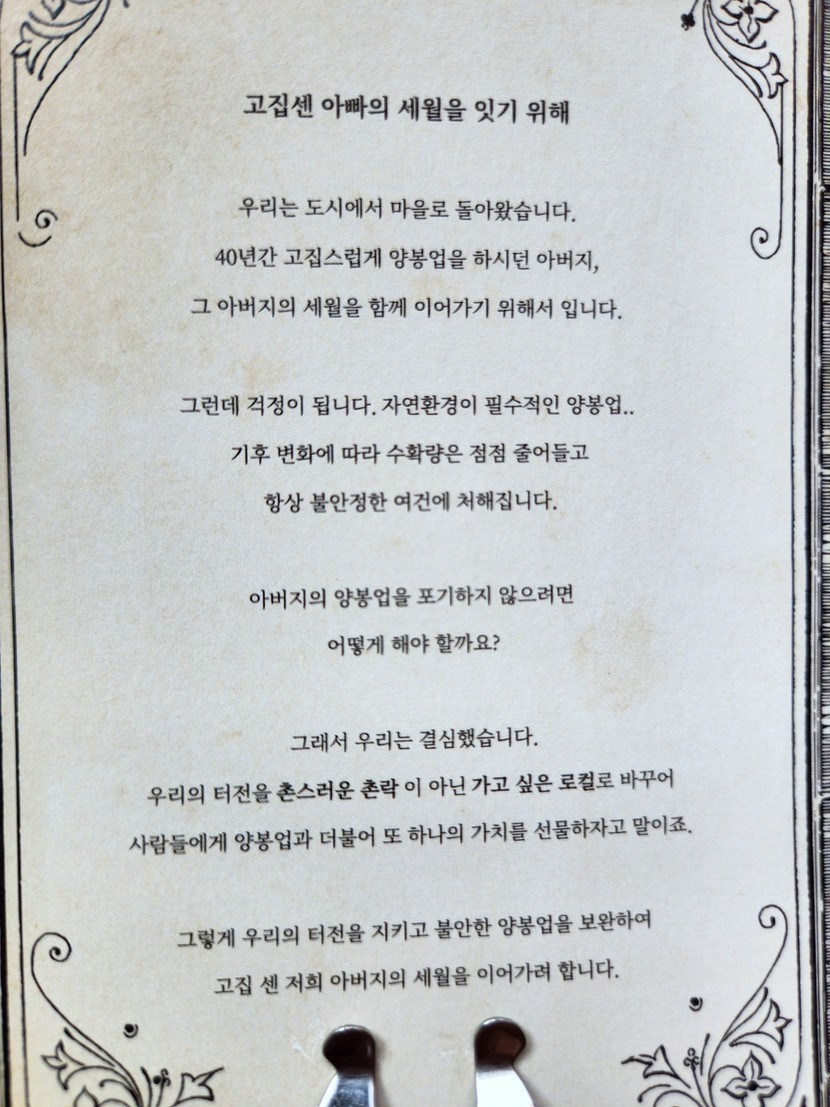 고집센 아빠의 세월을 잇기 위해
우리는 도시에서 마을로 돌아왔습니다.
40년간 고집스럽게 양봉업을 하시던 아버지,
그 아버지의 세월을 함께 이어가기 위해서 입니다.
그런데 걱정이 됩니다. 자연환경이 필수적인 양봉업..
기후 변화에 따라 수확량은 점점 줄어들고
항상 불안정한 여건에 처해집니다.
아버지의 양봉업을 포기하지 않으려면
어떻게 해야 할까요?
그래서 우리는 결심했습니다.
우리의 터전을 촌스러운 촌락 이 아닌 가고 싶은 로컬로 바꾸어
사람들에게 양봉업과 더불어 또 하나의 가치를 선물하자고 말이죠.
그렇게 우리의 터전을 지키고 불안한 양봉업을 보완하여
고집 센 저희 아버지의 세월을 이어가려 합니다.